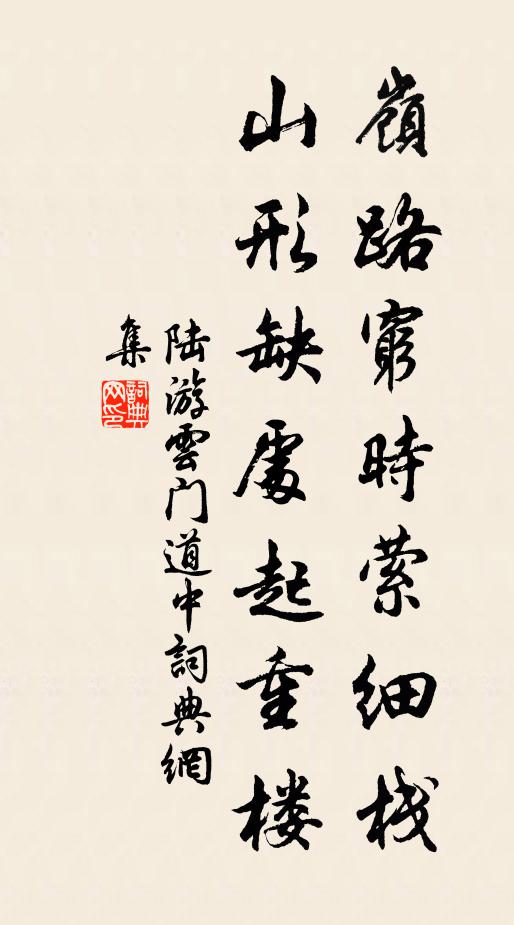 嶺路窮時縈细栈
山形缺處起重楼
陆游雲门道中詞典網
集
詞典网印